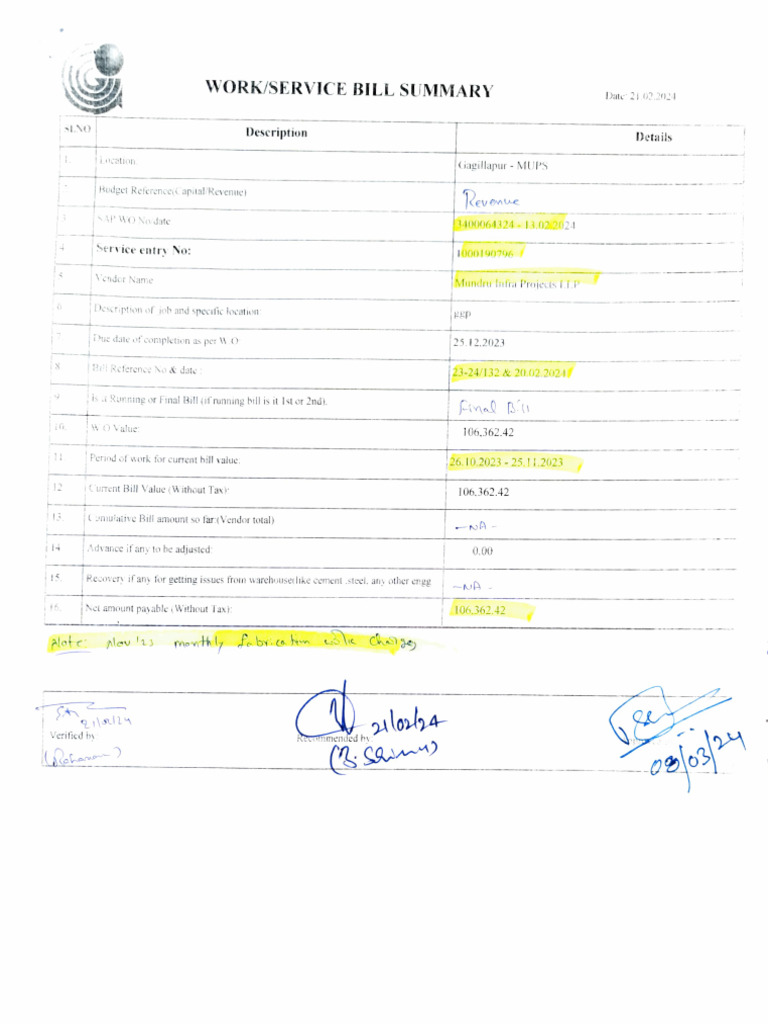 WORK/SERVICE BILL SUMMARY
Date: 21.02.2024
SI.NO Description Details
1. Location: Gagillapur - MUPS
2. Budget Reference(Capital/Revenue) Revenue
3. SAP WO No/date 3400064324 - 13.02.2024
4. Service entry No: 1000190796
5. Vender Name Mundru Infra Projects LLP
6. Description of job and specific location:
7. Due date of completion as per W.O 25.12.2023
8. Bill Reference No & date : 23-24/132 & 20.02.2024
9. Is a Running or Final Bill (if running bill is it 1st or 2nd). Final Bill
10. W.O Value: 106,362.42
11. Period of work for current bill value: 26.10.2023 - 25.11.2023
12. Current Bill Value (Without Tax): 106,362.42
13. Cumulative Bill amount so far:(Vendor total) -NA-
14. Advance if any to be adjusted: 0.00
15. Recovery if any for getting issues from warehouse like cement ,steel, any other engg -NA-
16. Net amount payable (Without Tax): 106,362.42
Note: Nov'23 monthly fabrication work charges
21/02/24 21/02/24
Verified by Recommended by
08/03/24